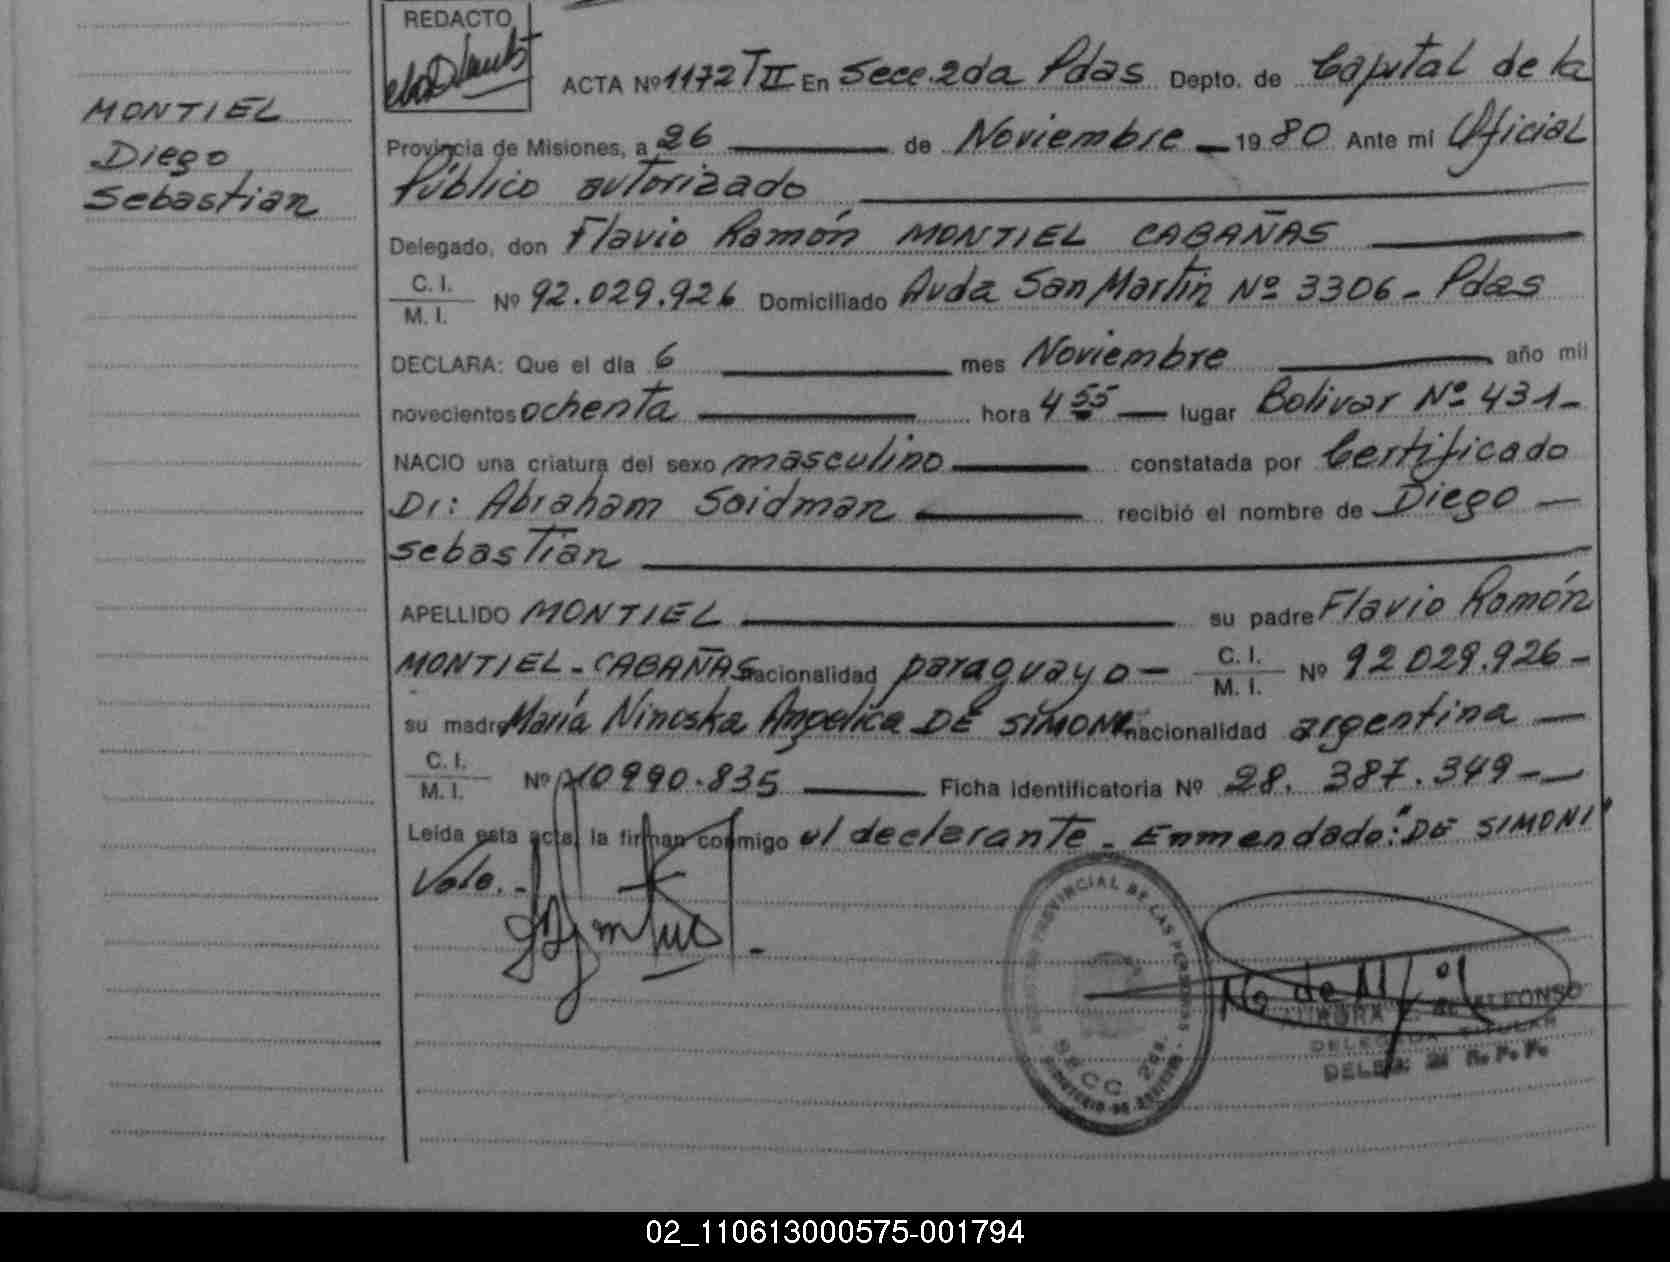 REDACTO
ACTA Nº 1172 T II En Secc. 2da Pdas Depto. de Capital de la
MONTIEL
Diego
Sebastian
Provincia de Misiones, a 26 de Noviembre 1980 Ante mi Oficial
Público autorizado
Delegado, don Flavio Ramón MONTIEL CABAÑAS
C. I.
M. I. Nº 92.029.926 Domiciliado Avda San Martin Nº 3306 - Pdas
DECLARA: Que el día 6 mes Noviembre año mil
novecientos ochenta hora 4 55 lugar Bolivar Nº 431-
NACIO una criatura del sexo masculino constatada por Certificado
Dr: Abraham Saidman recibió el nombre de Diego
Sebastian
APELLIDO MONTIEL su padre Flavio Ramón
MONTIEL - CABAÑAS nacionalidad paraguayo - C. I.
M. I. Nº 92 029.926 -
su madre María Ninoska Angelica DE SIMONI nacionalidad argentina
C. I.
M. I. Nº 10990.835 Ficha identificatoria Nº 28. 387. 349 -
Leída esta acta, la firman conmigo el declarante - Enmendado: "DE SIMONI"
Vale. -
PROVINCIAL DE LAS PERSONAS
SECC. 2da.
AURORA ALFONSO
DELEGADA TITULAR
DELEG. R. P. P.
02_110613000575-001794